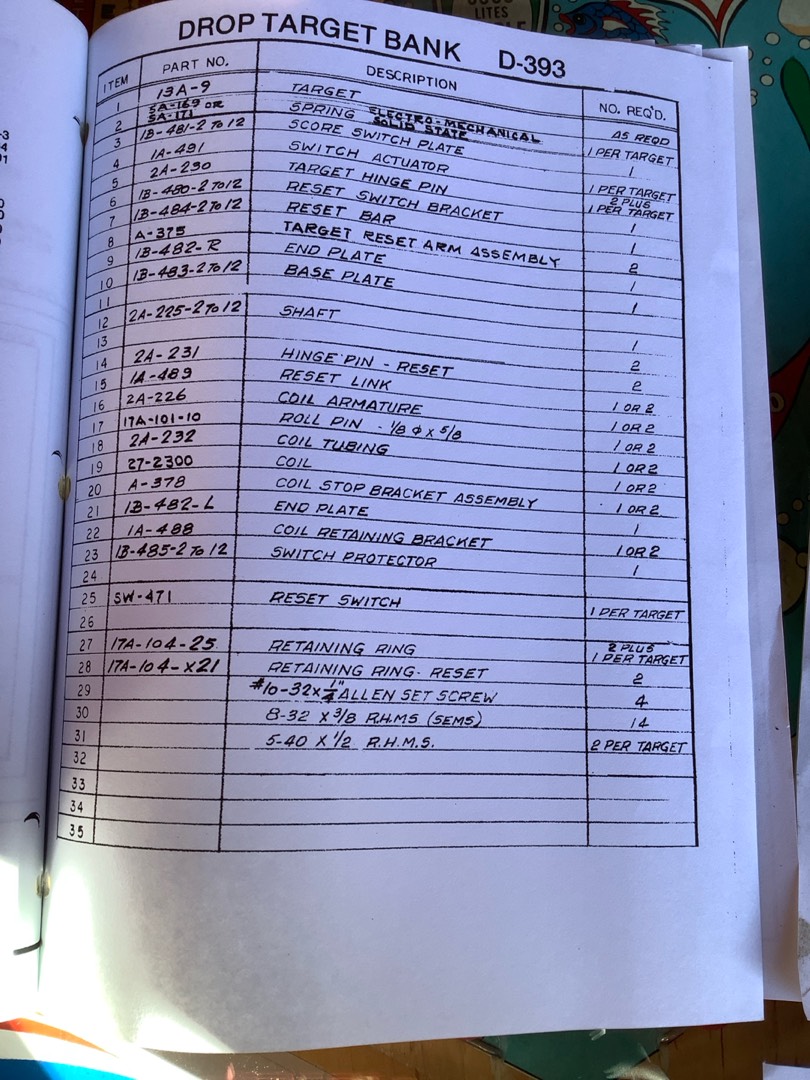 LITES
DROP TARGET BANK D-393
ITEM PART NO. DESCRIPTION NO. REQ'D.
1 13A-9 TARGET AS REQD
2 SA-169 OR SA-171 SPRING ELECTRO-MECHANICAL SOLID STATE 1 PER TARGET
3 1B-481-2 TO 12 SCORE SWITCH PLATE 1
4 1A-491 SWITCH ACTUATOR 1 PER TARGET
5 2A-230 TARGET HINGE PIN 2 PLUS 1 PER TARGET
6 1B-480-2 TO 12 RESET SWITCH BRACKET 1
7 1B-484-2 TO 12 RESET BAR 1
8 A-375 TARGET RESET ARM ASSEMBLY 2
9 1B-482-R END PLATE 1
10 1B-483-2 TO 12 BASE PLATE 1
11
12 2A-225-2 TO 12 SHAFT 1
13 2
14 2A-231 HINGE PIN - RESET 2
15 1A-489 RESET LINK 1 OR 2
16 2A-226 COIL ARMATURE 1 OR 2
17 17A-101-10 ROLL PIN - 1/8 φ X 5/8 1 OR 2
18 2A-232 COIL TUBING 1 OR 2
19 27-2300 COIL 1 OR 2
20 A-378 COIL STOP BRACKET ASSEMBLY 1 OR 2
21 1B-482-L END PLATE 1
22 1A-488 COIL RETAINING BRACKET 1 OR 2
23 1B-485-2 TO 12 SWITCH PROTECTOR 1
24
25 SW-471 RESET SWITCH 1 PER TARGET
26
27 17A-104-25 RETAINING RING 2 PLUS 1 PER TARGET
28 17A-104-X21 RETAINING RING - RESET 2
29 #10-32 x 1/4" ALLEN SET SCREW 4
30 8-32 X 3/8 R.H.M.S (SEMS) 14
31 5-40 X 1/2 R.H.M.S. 2 PER TARGET
32
33
34
35